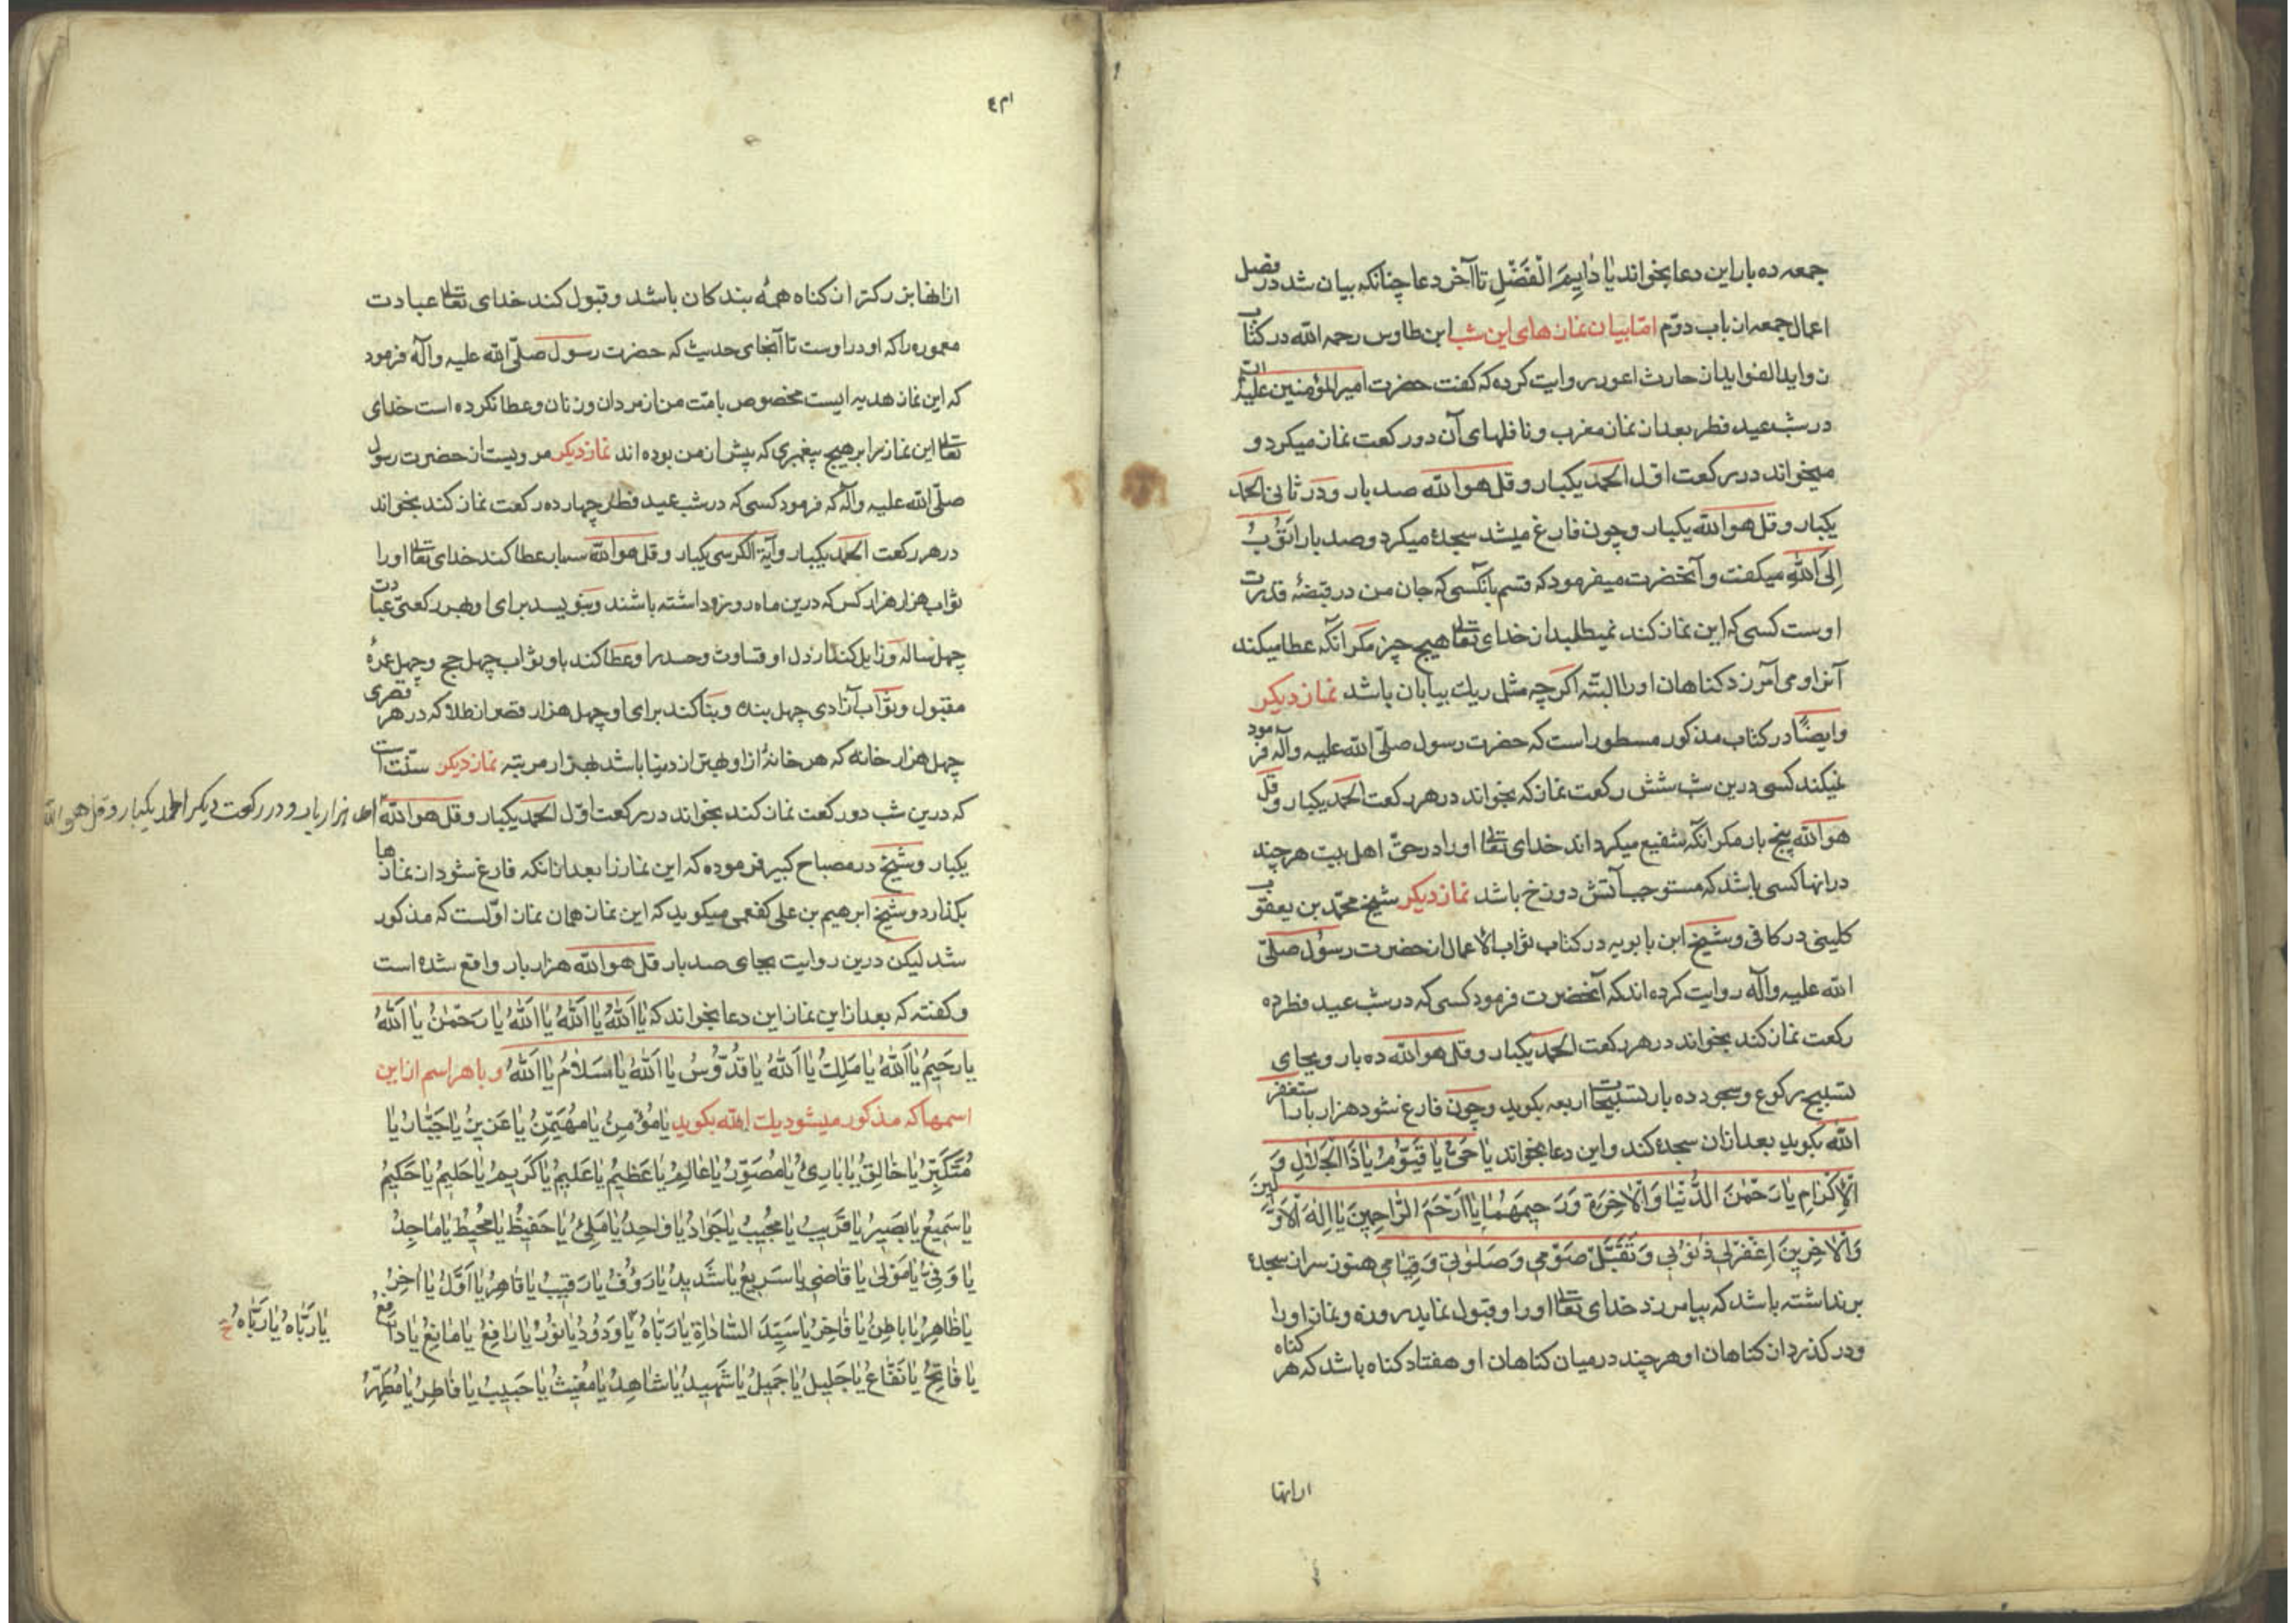 جمعه ده بار این دعا بخواند یا دَایِمَ الْفَضْلِ تا آخر دعا چنانکه بیان شد در فصل
اعمال جمعه از باب دوّم امّا بیان نمازهای این شب ابن طاوس رحمه الله در کتاب
زواید الفواید از حارث اعور روایت کرده که گفت حضرت امیر المؤمنین علیه
در شب عید فطر بعد از نماز مغرب و نافلهای آن دو رکعت نماز میکرد و
میخواند در رکعت اوّل الحمد یکبار و قل هو الله صد بار و در ثانی الحمد
یکبار و قل هو الله یکبار و چون فارغ میشد سجده میکرد و صد بار اَتُوبُ
اِلَی اللهِ میکفت و آنحضرت میفرمود که قسم بآنکسی که جان من در قبضهٔ قدرت
اوست کسی که این نماز کند نمیطلبد از خدای تعالی هیچ چیز مکر انکه عطا میکند
آنرا و می آمرزد کناهان او را البتّه اکر چه مثل ریک بیابان باشد نماز دیکر
و ایضاً در کتاب مذکور مسطور است که حضرت رسول صلّی الله علیه وآله فرمود
نمیکند کسی درین شب شش رکعت نماز که بخواند در هر رکعت الحمد یکبار و قل
هو الله پنج بار مکر انکه شفیع میکرداند خدای تعالی او را در حقّ اهل بیت هر چند
در انها کسی باشد که مستوجب آتش دوزخ باشد نماز دیکر شیخ محمّد بن یعقوب
کلینی در کافی و شیخ ابن بابویه در کتاب ثواب الاعمال از حضرت رسول صلّی
الله علیه وآله روایت کرده اند که آنحضرت فرمود کسی که در شب عید فطر ده
رکعت نماز کند بخواند در هر رکعت الحمد یکبار و قل هو الله ده بار و بجای
تسبیح رکوع و سجود ده بار تسبیحات اربعه بکوید و چون فارغ شود هزار بار استغفر
الله بکوید بعد از ان سجده کند و این دعا بخواند یا حَیُّ یا قَیُّوْمُ یا ذَا الْجَلالِ وَ
الْاِکْرامِ یا رَحْمٰنَ الدُّنْیا وَالْاٰخِرَةِ وَرَحِیمَهُمٰا یا اَرْحَمَ الرّٰاحِمِینَ یا اِلٰهَ الْاَوَّلِینَ
وَالْاٰخِرِینَ اِغْفِرْ لِی ذُنُوْبِی وَتَقَبَّلْ صَوْمِی وَصَلٰوتِی وَقِیٰامِی هنوز سر از سجده
برنداشته باشد که بیامرزد خدای تعالی او را و قبول نماید روزه و نماز او را
و در کذرد از کناهان او هر چند در میان کناهان او هفتاد کناه باشد که هر کناه
ازانها
ازانها بزرکتر از کناه همهٔ بندکان باشد و قبول کند خدای تعالی عبادت
معموره را که او در اوست تا آنجای حدیث که حضرت رسول صلّی الله علیه وآله فرمود
که این نماز هدیه ایست مخصوص بامّت من از مردان و زنان و عطا نکرده است خدای
تعالی این نماز را بر هیچ پیغمبری که پیش از من بوده اند نماز دیکر مرویست از حضرت رسول
صلّی الله علیه وآله که فرمود کسی که در شب عید فطر چهارده رکعت نماز کند بخواند
در هر رکعت الحمد یکبار و آیة الکرسی یکبار و قل هو الله سه بار عطا کند خدای تعالی او را
ثواب هزار هزار کس که درین ماه روزه داشته باشند و بنویسد برای او بهر رکعتی عبادت
چهل ساله و زایل کند از دل او قساوت و حسد را و عطا کند باو ثواب چهل حج و چهل عمرهٔ
مقبول و ثواب آزادی چهل بنده و بنا کند برای او چهل هزار قصر از طلا که در هر قصری
چهل هزار خانه که هر خانهٔ ازاو بهتر از دنیا باشد بهزار مرتبه نماز دیکر سنّت است
که درین شب دو رکعت نماز کند بخواند در رکعت اوّل الحمد یکبار و قل هو الله
احد هزار بار و در رکعت دیکر الحمد یکبار و قل هو الله
یکبار و شیخ در مصباح کبیر فرموده که این نماز را بعد ازانکه فارغ شود از نمازها
بکذارد و شیخ ابرهیم بن علی کفعمی میکوید که این نماز همان نماز اوّلست که مذکور
شد لیکن درین روایت بجای صد بار قل هو الله هزار بار واقع شده است
و کفته که بعد از این نماز این دعا بخواند که یا اَللهُ یا اَللهُ یا اَللهُ یا رَحْمٰنُ یا اَللهُ
یا رَحِیمُ یا اَللهُ یا مَلِکُ یا اَللهُ یا قُدُّوسُ یا اَللهُ یا سَلامُ یا اَللهُ و با هر اسم از این
اسمها که مذکور میشود یک الله بکوید یا مُؤْمِنُ یا مُهَیْمِنُ یا عَزِیزُ یا جَبّٰارُ یا
مُتَکَبِّرُ یا خٰالِقُ یا بٰارِئُ یا مُصَوِّرُ یا عٰالِمُ یا عَظِیمُ یا عَلِیمُ یا کَرِیمُ یا حَلِیمُ یا حَکِیمُ
یا سَمِیعُ یا بَصِیرُ یا قَرِیبُ یا مُجِیبُ یا جَوٰادُ یا وٰاحِدُ یا مَلِیُّ یا حَفِیظُ یا مُحِیطُ یا مٰاجِدُ
یا وَفِیُّ یا مَوْلیٰ یا قٰاضِی یا سَرِیعُ یا شَدِیدُ یا رَؤُفُ یا رَقِیبُ یا قٰاهِرُ یا اَوَّلُ یا اٰخِرُ
یا ظٰاهِرُ یا بٰاطِنُ یا فٰاخِرُ یا سَیِّدَ السّٰادٰاةِ یا رَبّٰاهُ یا وَدُودُ یا نُورُ یا رٰافِعُ یا مٰانِعُ یا دٰافِعُ
یا رَبّٰاهُ یا رَبّٰاهُ
یا فٰاتِحُ یا نَفّٰاعُ یا جَلِیلُ یا جَمِیلُ یا شَهِیدُ یا شٰاهِدُ یا مُغِیثُ یا حَبِیبُ یا فٰاطِرُ یا مُطَهِّرُ